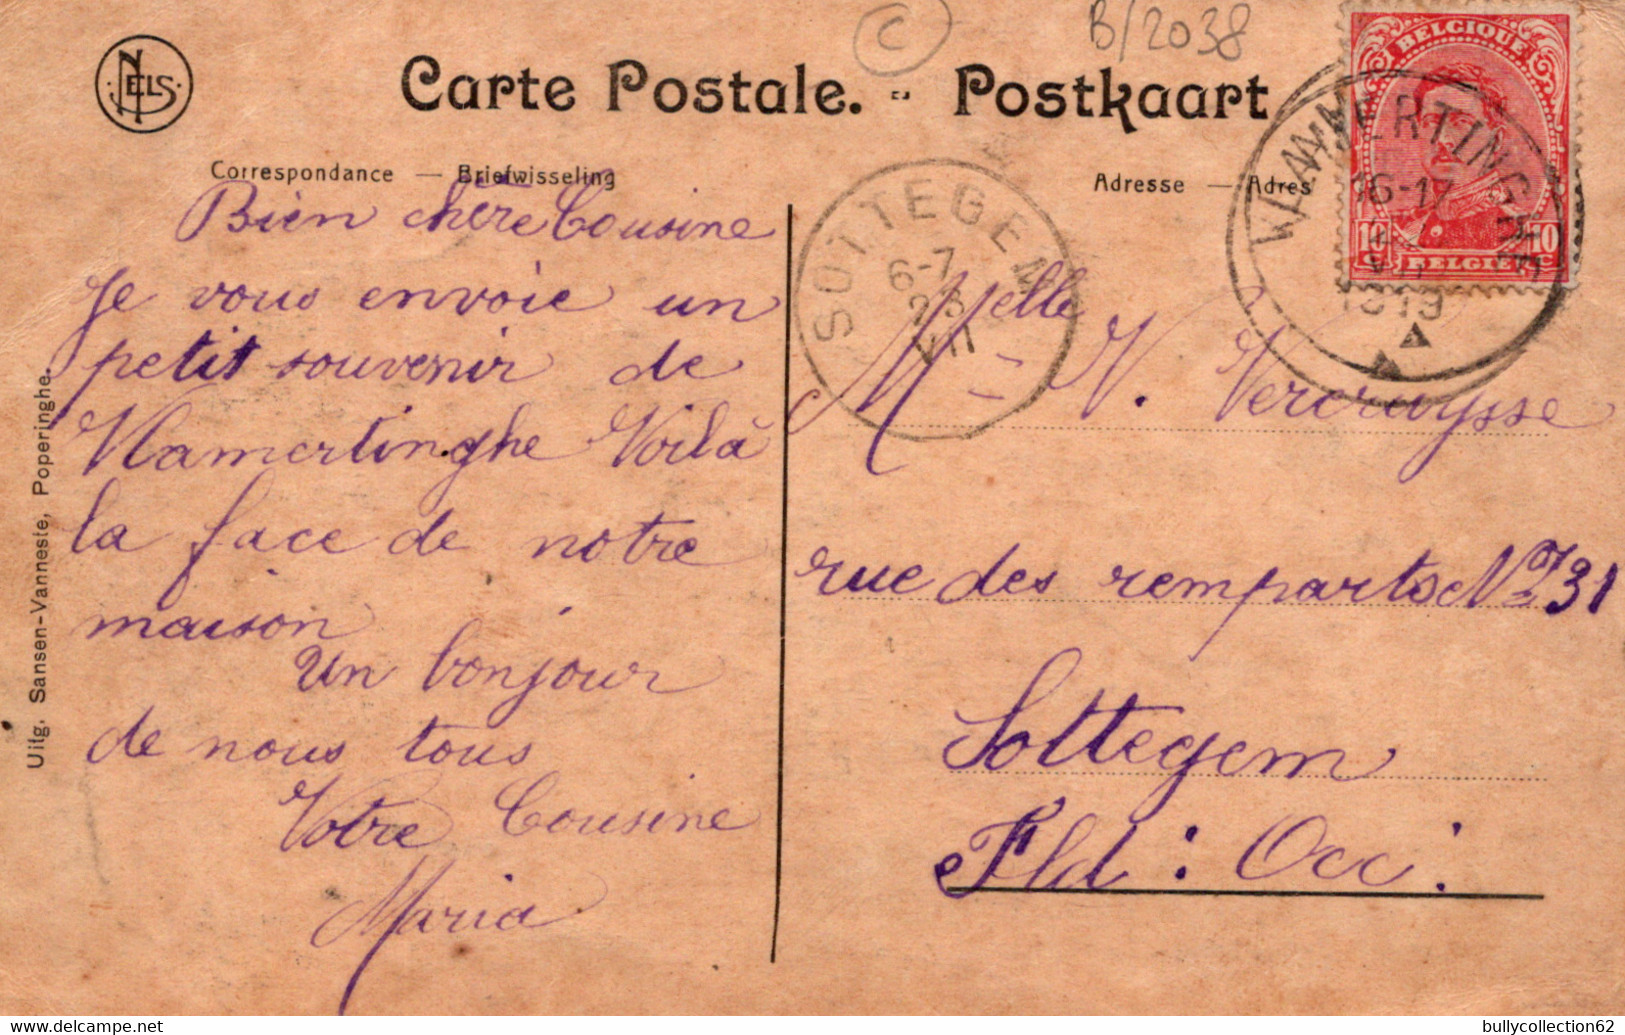 NELS
Carte Postale. - Postkaart
C
B/2038
Correspondance — Briefwisseling
Adresse — Adres
BELGIQUE
10 10
BELGIË
VLAMERTINGHE
16-17
VII
1919
SOTTEGEM
6-7
23
VII
Bien chère Cousine
Je vous envoie un
petit souvenir de
Vlamertinghe Voilà
la face de notre
maison
Un bonjour
de nous tous
Votre Cousine
Maria
Melle N. Vercruysse
rue des remparts No 31
Sottegem
Fld : Occ :
Uitg. Sansen-Vanneste, Poperinghe.
bullycollection62